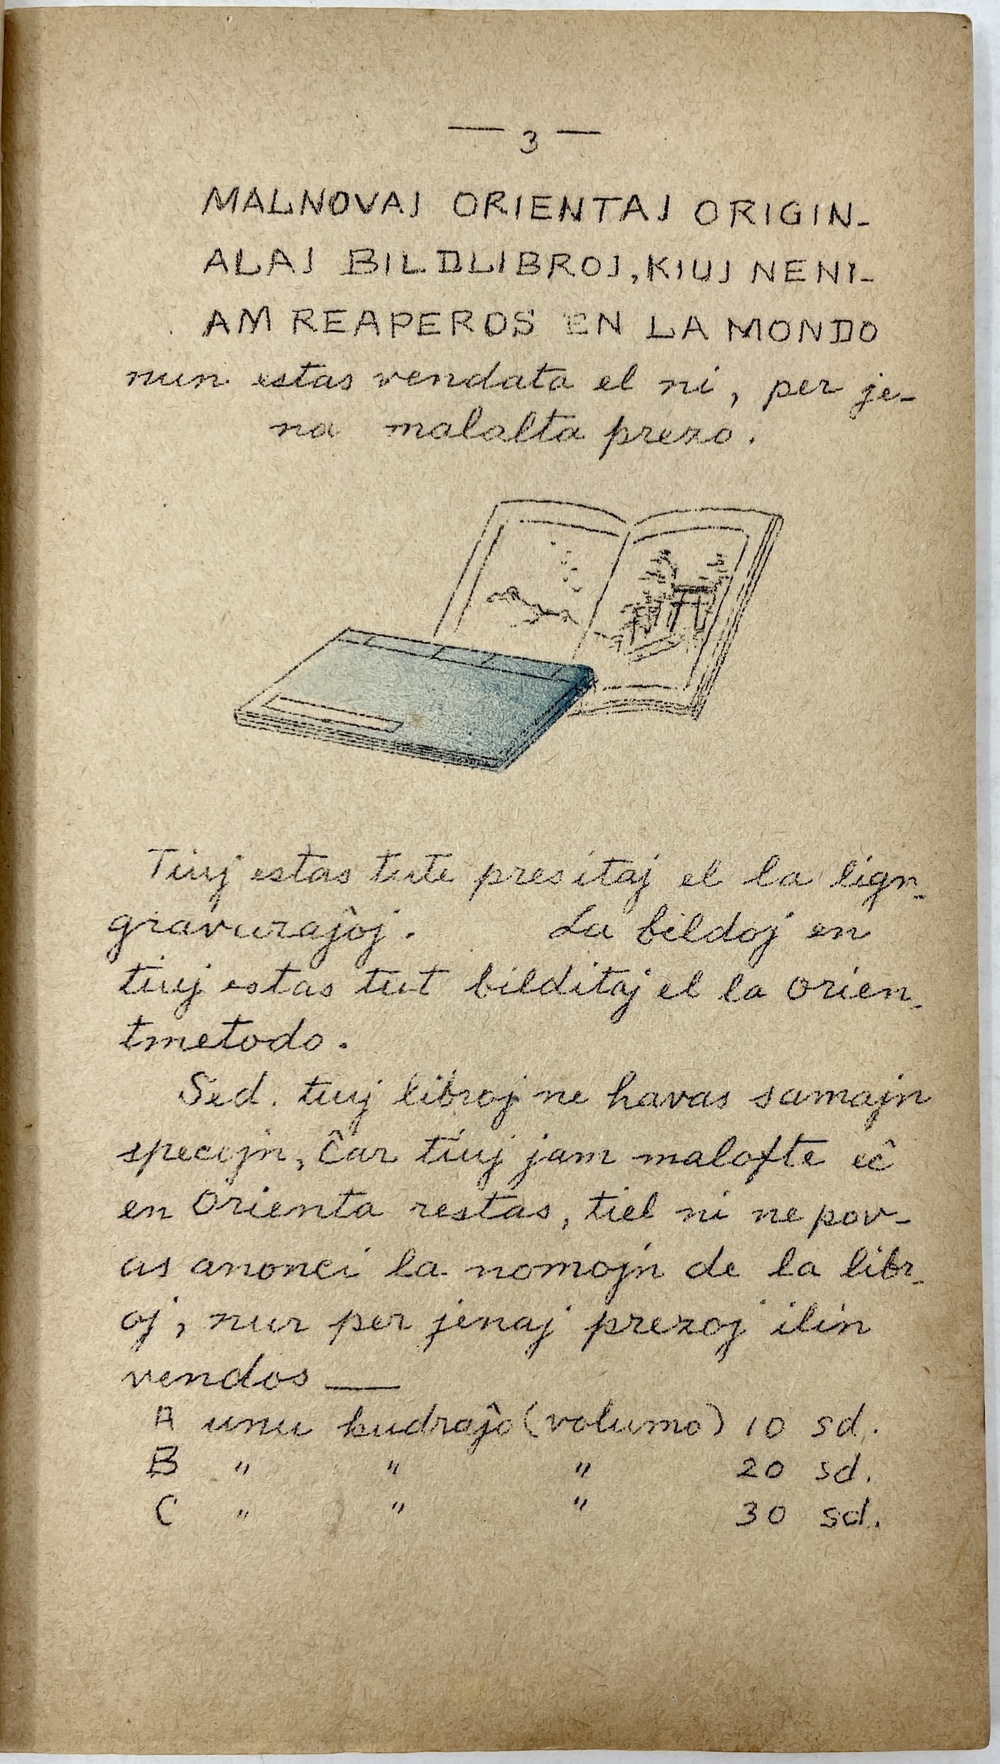 — 3 —
MALNOVAJ ORIENTAJ ORIGIN-
ALAJ BILDLIBROJ, KIUJ NENI-
AM REAPEROS EN LA MONDO
nun estas vendata el ni, per je-
na malalta prezo.
Tiuj estas tute presitaj el la lign-
gravuraĵoj. La bildoj en
tiuj estas tut bilditaj el la orien-
tmetodo.
Sed. tiuj libroj ne havas samajn
specijn, ĉar tiuj jam malofte eĉ
en Orienta restas, tiel ni ne pov-
as anonci la nomojn de la libr-
oj, nur per jenaj prezoj ilin
vendos —
A unu kudraĵo (volumo) 10 sd.
B " " " 20 sd.
C " " " 30 sd.